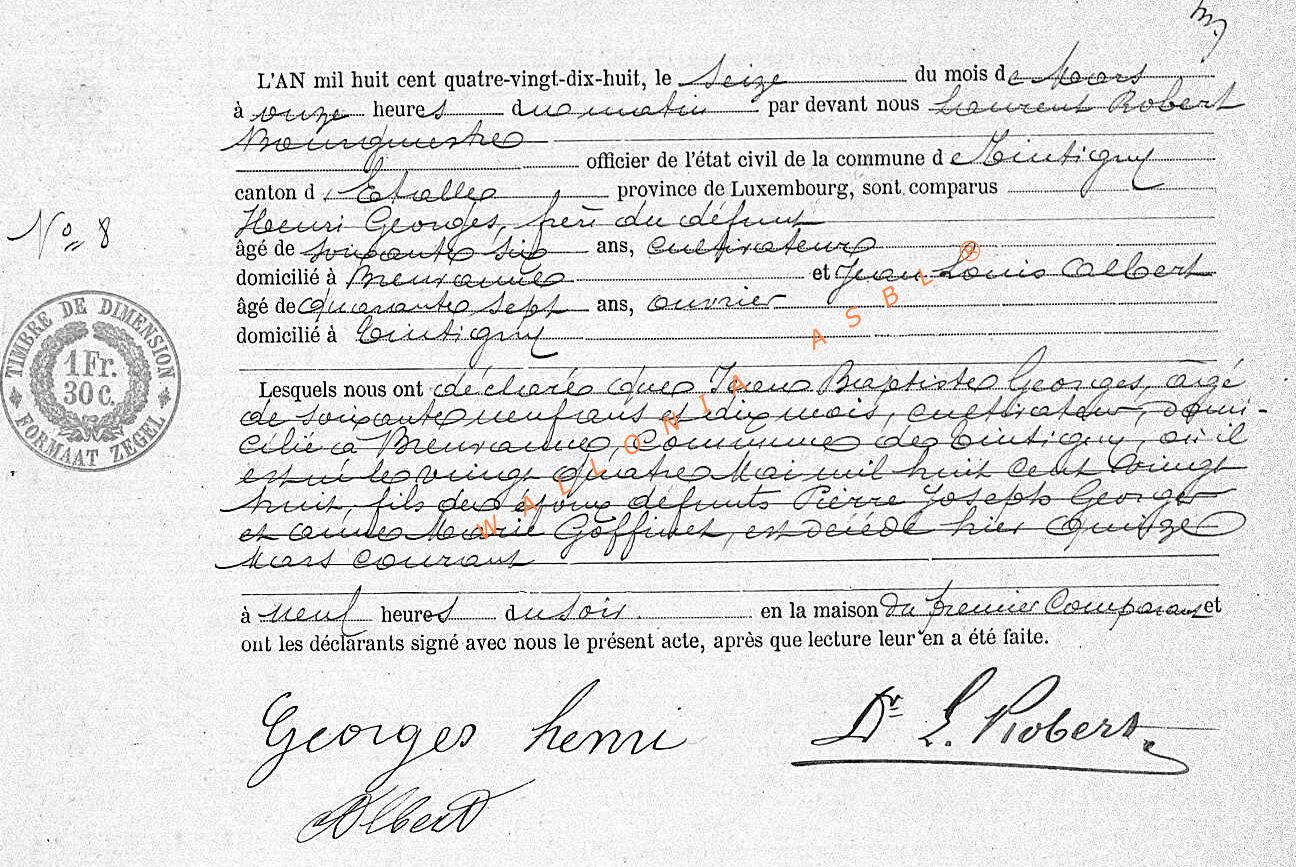 L'AN mil huit cent quatre-vingt-dix-huit, le Seize du mois de Mars
à onze heures du matin par devant nous Laurent Robert
Bourgmestre
officier de l'état civil de la commune de Tintigny
canton d'Etalle province de Luxembourg, sont comparus
Henri Georges, frère du défunt
N° 8
âgé de soixante six ans, cultivateur
domicilié à Breuvanne et Jean Louis Albert
âgé de quarante sept ans, ouvrier
domicilié à Tintigny
TIMBRE DE DIMENSION
1 Fr.
30 C.
FORMAAT ZEGEL
Lesquels nous ont déclaré que Jean Baptiste Georges, âgé
de soixante neuf ans et dix mois, cultivateur, domi-
cilié à Breuvanne, commune de Tintigny, où il
est né le vingt quatre Mai mil huit cent vingt
huit, fils des époux défunts Pierre Joseph Georges
et Anne Marie Goffinet, est décédé hier quinze
Mars courant
à neuf heures du soir en la maison du premier Comparant et
ont les déclarants signé avec nous le présent acte, après que lecture leur en a été faite.
Georges henri Dr L. Robert
Albert
WALLONIA ASBL ®